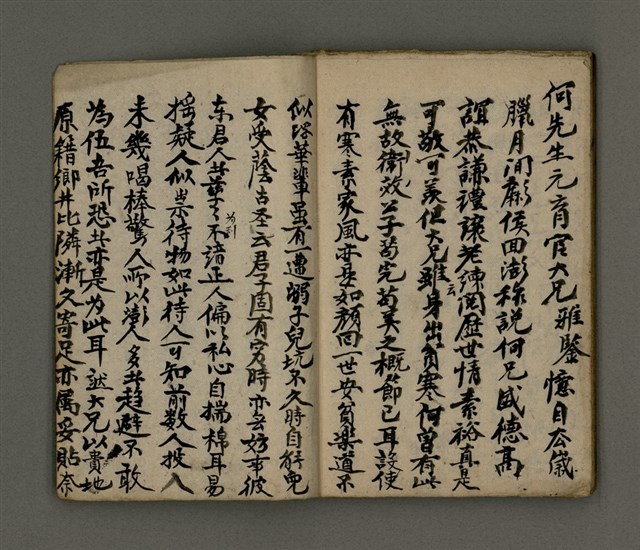 何先生元育官大兄雅鑒憶自本歲
臘月間蔡侯回澎称説何兄盛德高
誼恭謙禮讓老練閱歷世情素裕真是
可敬可羨但大兄雖云身出貧寒何曾有此
無故衛效公子苟完苟美之概節已耳設使
有寒素家風亦是如顏回一世安貧樂道不
似塔華輩虽有一遭溺子兒坑不久時自能免
女受蔭古圣云君子固有窮時亦無妨事彼
東君人共葉々不諳正人偏以私心自揣棉耳易
搖疑人似柴待物如此待人可知前数人投入
未幾喝棒驚人所以澎人多共趋避不敢
為伍吾所恐共亦是为此耳誂大兄以貴地
原籍鄉井比隣漸久寄足亦属妥貼奈